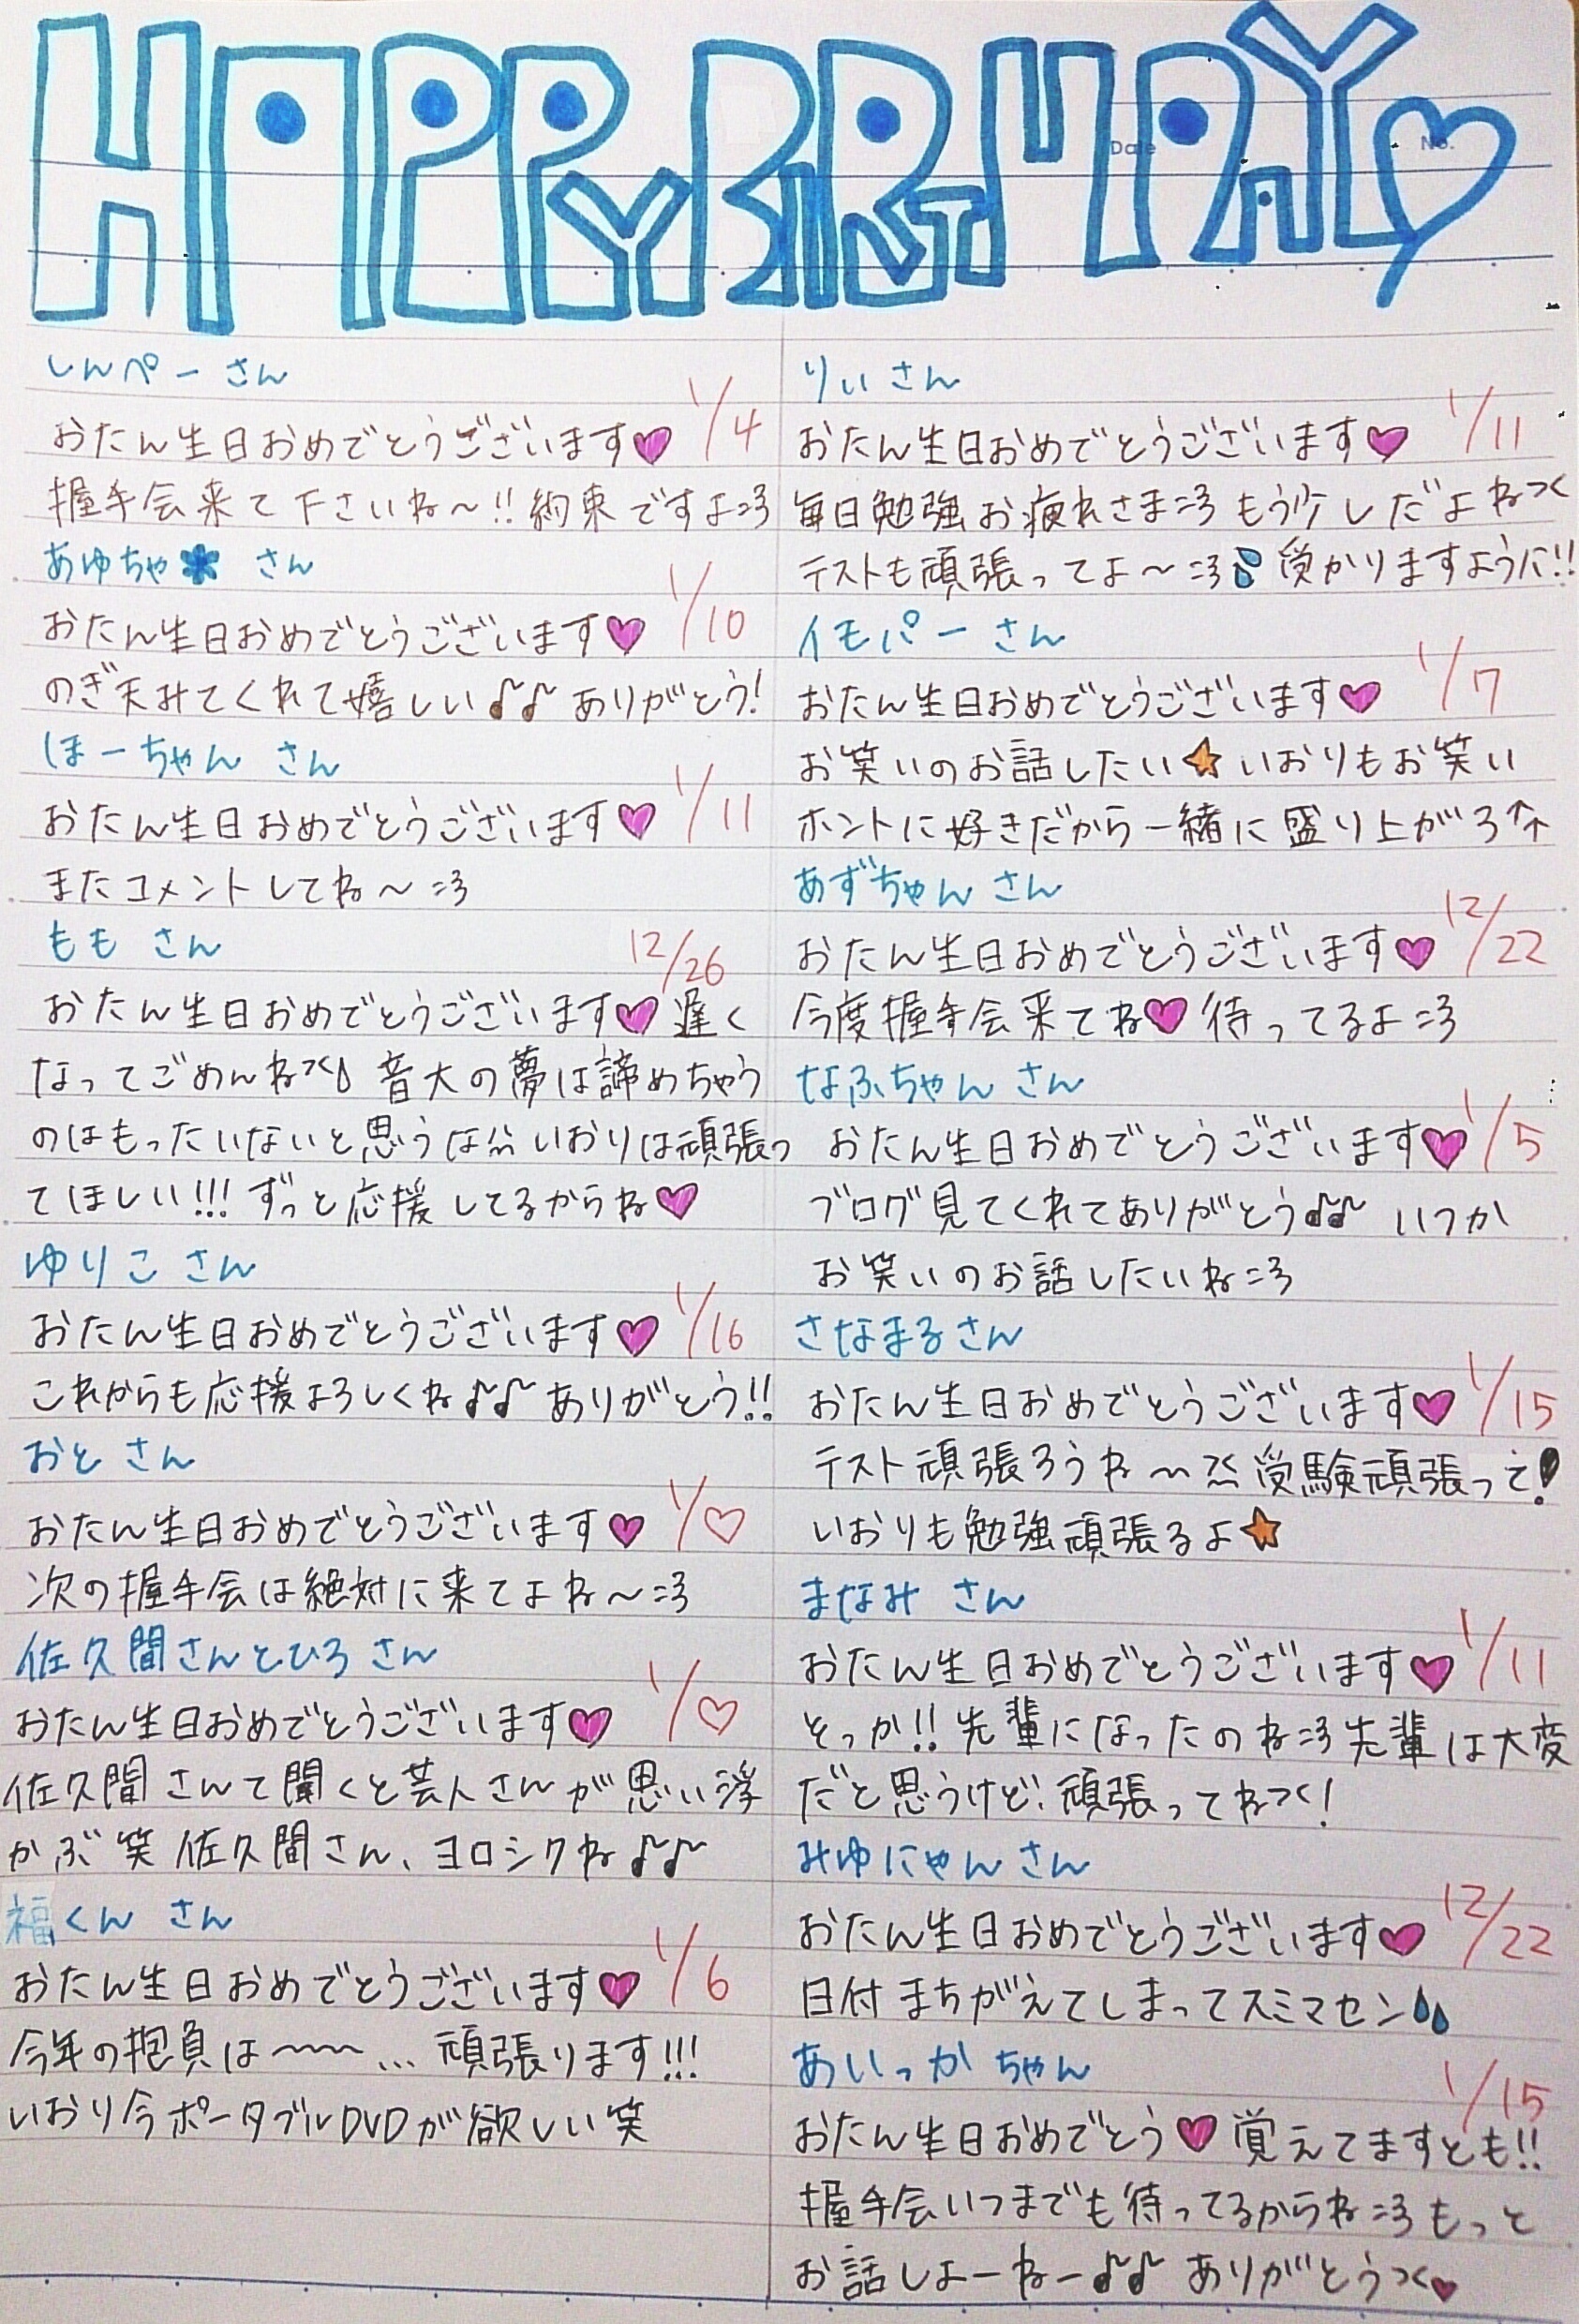 HAPPY BIRTHDAY♡
Date
No.
しんぺーさん
1/4
おたん生日おめでとうございます♥
握手会来て下さいね〜!!約束ですよ=3
あゆちゃ✽ さん
1/10
おたん生日おめでとうございます♥
のぎ天みてくれて嬉しい♪♪ありがとう!
ほーちゃん さん
1/11
おたん生日おめでとうございます♥
またコメントしてね〜=3
もも さん
12/26
おたん生日おめでとうございます♥遅く
なってごめんね 音大の夢は諦めちゃう
のはもったいないと思うな いおりは頑張っ
てほしい!!!ずっと応援してるからね♥
ゆりこ さん
1/16
おたん生日おめでとうございます♥
これからも応援よろしくね♪♪ありがとう!!
おと さん
1/♡
おたん生日おめでとうございます♥
次の握手会は絶対に来てよね〜=3
佐久間さんとひろ さん
1/♡
おたん生日おめでとうございます♥
佐久間さんて聞くと芸人さんが思い浮
かぶ笑 佐久間さん、ヨロシクね♪♪
福くん さん
1/6
おたん生日おめでとうございます♥
今年の抱負は〜〜〜…頑張ります!!!
いおり今ポータブルDVDが欲しい笑
りぃさん
1/11
おたん生日おめでとうございます♥
毎日勉強お疲れさま=3もう少しだよね
テストも頑張ってよ〜=3 受かりますように!!
イモパーさん
1/7
おたん生日おめでとうございます♥
お笑いのお話したい★いおりもお笑い
ホントに好きだから一緒に盛り上がろ↑
あずちゃん さん
12/22
おたん生日おめでとうございます♥
今度握手会来てね♥待ってるよ=3
なふちゃん さん
1/5
おたん生日おめでとうございます♥
ブログ見てくれてありがとう♪♪ いつか
お笑いのお話したいね=3
さなまるさん
1/15
おたん生日おめでとうございます♥
テスト頑張ろうね〜 受験頑張って!
いおりも勉強頑張るよ★
まなみ さん
1/11
おたん生日おめでとうございます♥
とっか!!先輩になったのね=3先輩は大変
だと思うけど、頑張ってね!
みゆにゃん さん
12/22
おたん生日おめでとうございます♥
日付まちがえてしまってスミマセン
あいっか ちゃん
1/15
おたん生日おめでとう♥覚えてますとも!!
握手会いつまでも待ってるからね=3もっと
お話しよーねー♪♪ ありがとう♥